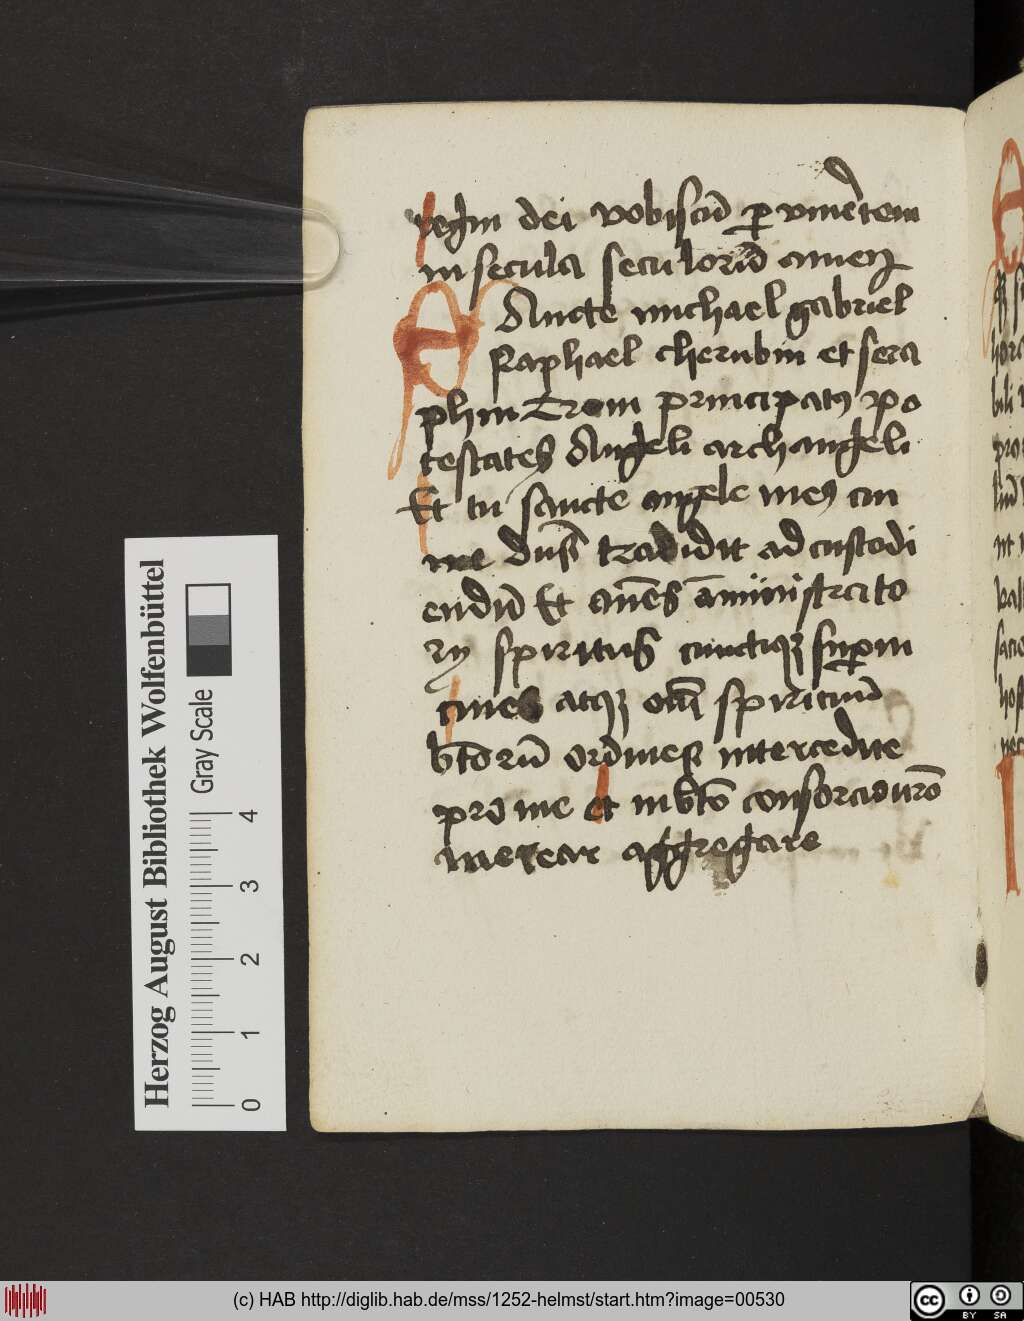 regm dei vobiscū ꝑ vin̄ere tem
in secula seculorū amen
SAncte michael gabriel
Raphael cherubin et sera
phin Troni principatꝰ po
testates Angeli archangeli
Et tu sancte angele meꝰ cui
me dn̄s tradidit ad custodi
endū Et om̄es āministrato
ry spiritus cunctiqꝫ suꝑni
ciues atqꝫ om̄ spirituū
btōrū ordinesqꝫ intercedite
pro me et in btō consorcio vrō
merear aggregare
Herzog August Bibliothek Wolfenbüttel
Gray Scale
0 1 2 3 4
(c) HAB http://diglib.hab.de/mss/1252-helmst/start.htm?image=00530
cc BY SA